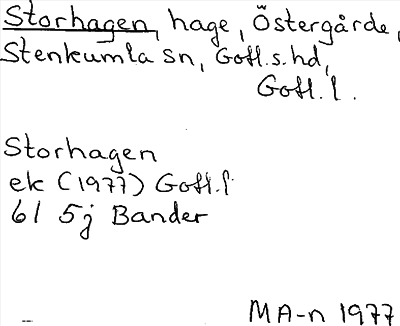 Storhagen, hage, Östergårde,
Stenkumla sn, Gotl.s.hd,
Gotl. l.
Storhagen
ek (1977) Gotl. l
6I 5j Bander
MA-n 1977